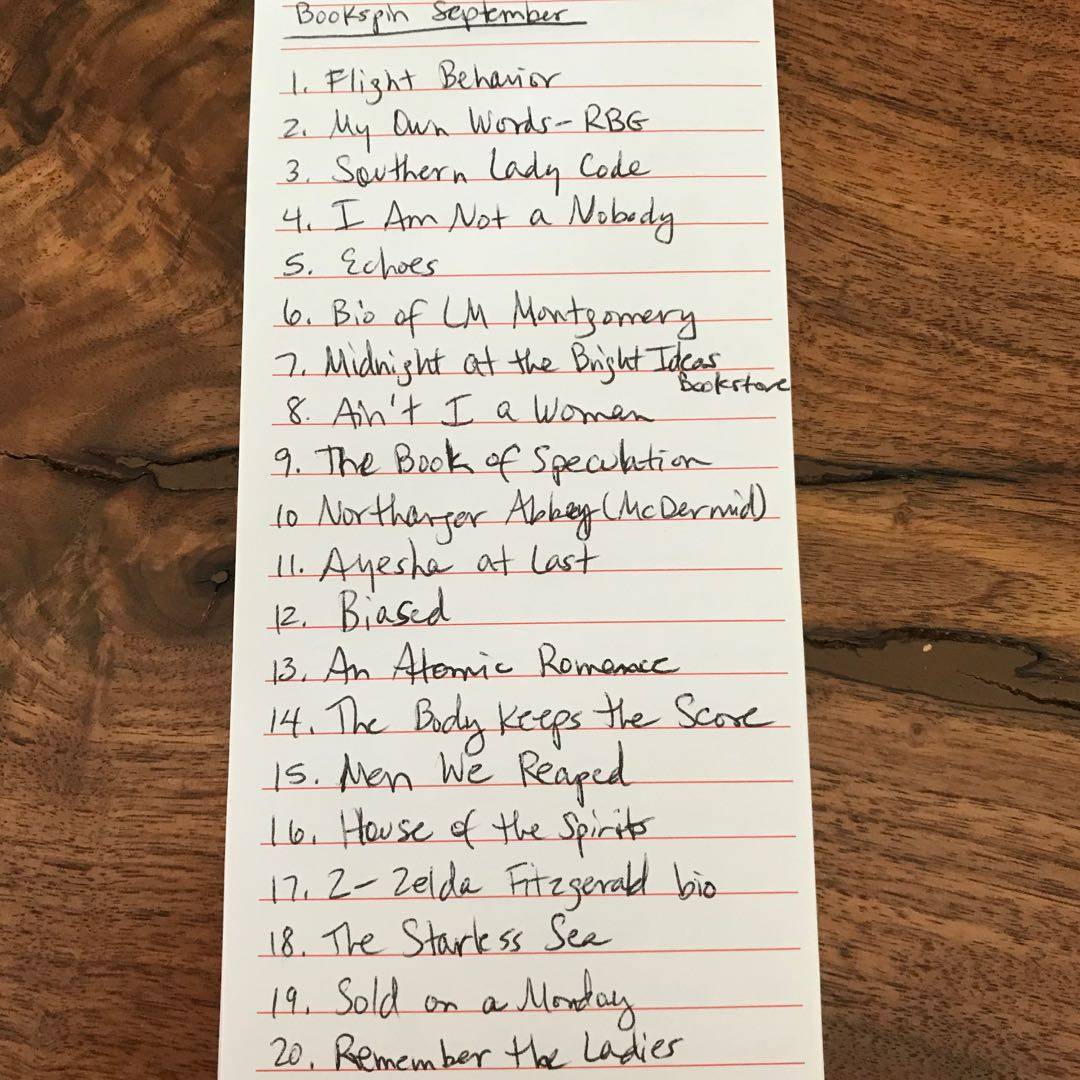 Bookspin September
1. Flight Behavior
2. My Own Words-RBG
3. Southern Lady Code
4. I Am Not a Nobody
5. Echoes
6. Bio of LM Montgomery
7. Midnight at the Bright Ideas
Bookstore
8. Ain't I a Woman
9. The Book of Speculation
10 Northanger Abbey (McDermid)
11. Ayesha at Last
12. Biased
13. An Atomic Romance
14. The Body Keeps the Score
15. Men We Reaped
16. House of the Spirits
17. Z- Zelda Fitzgerald bio
18. The Starless Sea
19. Sold on a Monday
20. Remember the Ladies